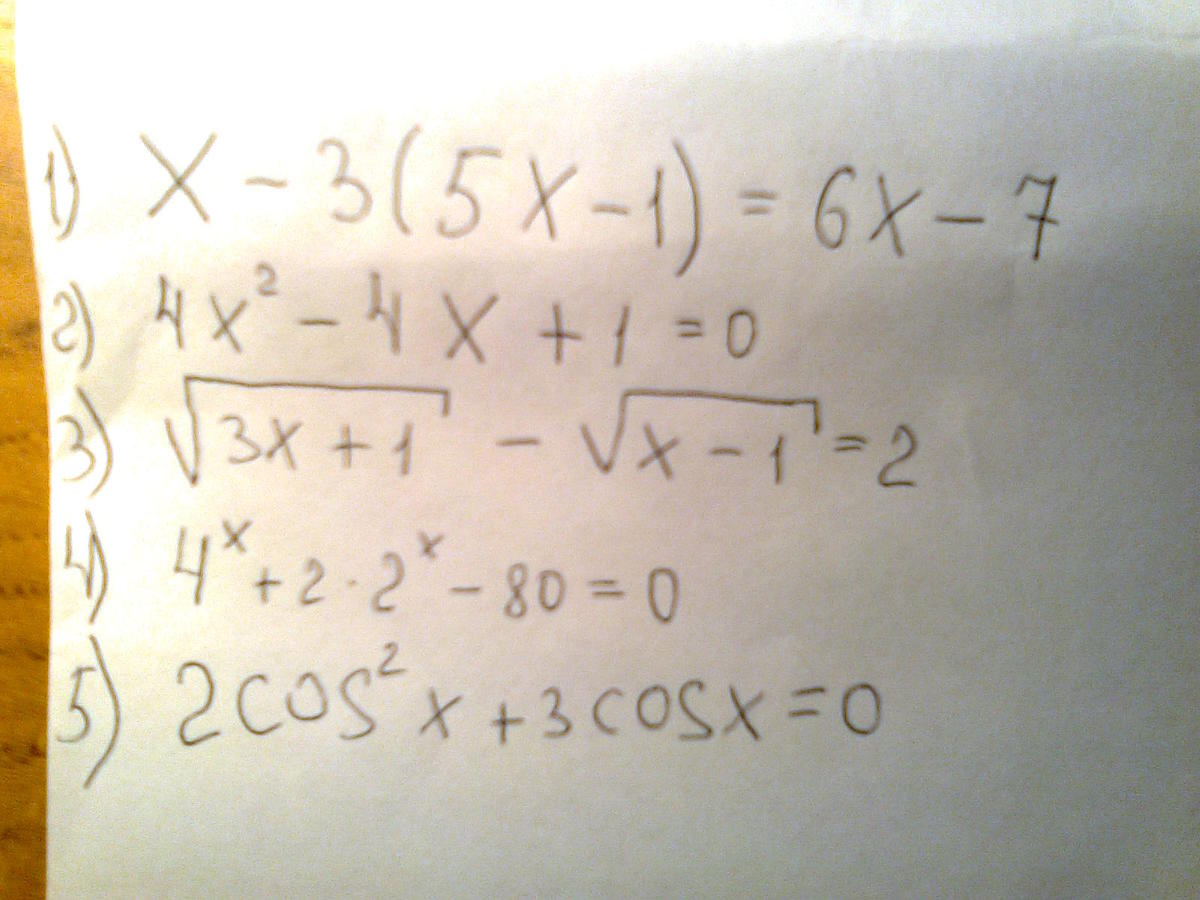 1) x - 3(5x - 1) = 6x - 7
2) 4x² - 4x + 1 = 0
3) √(3x + 1) - √(x - 1) = 2
4) 4ˣ + 2 · 2ˣ - 80 = 0
5) 2cos² x + 3cosx = 0